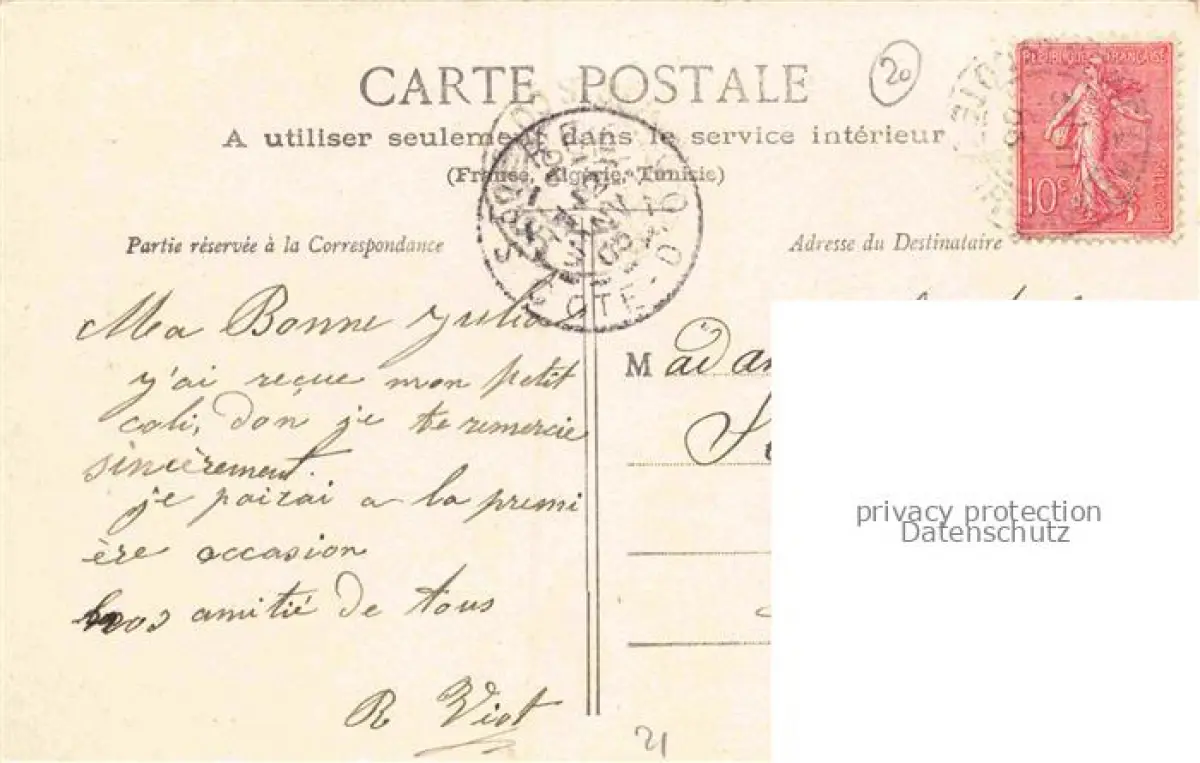 20
CARTE POSTALE
A utiliser seulement dans le service intérieur
(France, Algérie, Tunisie)
RÉPUBLIQUE FRANÇAISE
10c
POSTES
CÔTE-D'OR
Partie réservée à la Correspondance
Adresse du Destinataire
Ma Bonne Julia
j'ai reçue mon petit
coli, don je te remercie
sincèrement.
je pairai a la premi
ère occasion
nos amitié de tous
R Viot
21
Madam
privacy protection
Datenschutz